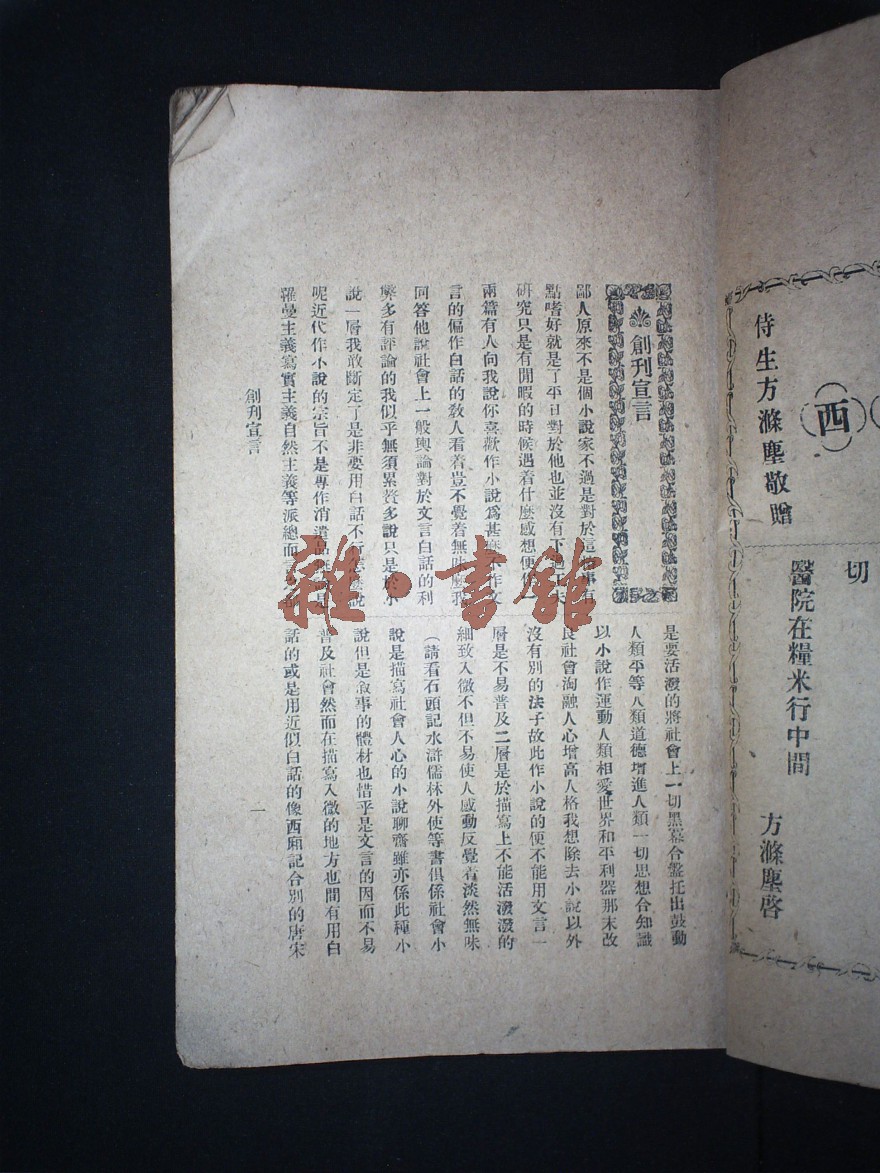 切
西
侍生方滌塵敬贈
醫院在糧米行中間
方滌塵啓
創刊宣言
鄙人原來不是個小說家不過是對於這事有
點嗜好就是了平日對於他也並沒有下
研究只是有閒暇的時候遇着什麼感想便
兩篇有人向我說你喜歡作小說爲甚麼不作文
言的偏作白話的敎人看着豈不覺着無味麼我
回答他說社會上一般輿論對於文言白話的利
弊多有評論的我似乎無須累贅多說只是於小
說一層我敢斷定了是非要用白話不行怎麼說
呢近代作小說的宗旨不是專作消遣品是
羅曼主義寫實主義自然主義等派總而言
是要活潑的將社會上一切黑幕合盤托出鼓動
人類平等人類道德增進人類一切思想合知識
以小說作運動人類相愛世界和平利器那末改
良社會淘融人心增高人格我想除去小說以外
沒有別的法子故此作小說的便不能用文言一
層是不易普及二層是於描寫上不能活潑潑的
細致入微不但不易使人感動反覺着淡然無味
（請看石頭記水滸儒林外使等書俱係社會小
說是描寫社會人心的小說聊齋雖亦係此種小
說但是敍事的體材也惜乎是文言的因而不易
普及社會然而在描寫入微的地方也間有用白
話的或是用近似白話的像西廂記合別的唐宋
創刊宣言
一
雜·書館